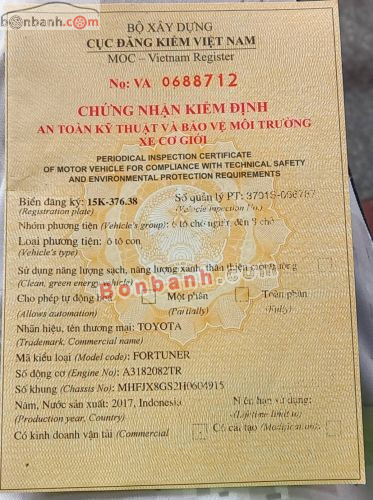 Bonbanh.com
BỘ XÂY DỰNG
CỤC ĐĂNG KIỂM VIỆT NAM
MOC – Vietnam Register
No: VA 0688712
CHỨNG NHẬN KIỂM ĐỊNH
AN TOÀN KỸ THUẬT VÀ BẢO VỆ MÔI TRƯỜNG
XE CƠ GIỚI
PERIODICAL INSPECTION CERTIFICATE
OF MOTOR VEHICLE FOR COMPLIANCE WITH TECHNICAL SAFETY
AND ENVIRONMENTAL PROTECTION REQUIREMENTS
Biển đăng ký: 15K-376.38 Số quản lý PT:
(Registration plate) (Vehicle Inpection No.)
Nhóm phương tiện (Vehicle's group): ô tô chở người đến 8 chỗ
Loại phương tiện: ô tô con
(Vehicle's type)
Sử dụng năng lượng sạch, năng lượng xanh, thân thiện môi trường
(Clean, green energy vehicle)
Cho phép tự động hóa Một phần Toàn phần
(Allows automation) (Partially) (Fully)
Bonbanh.com
Nhãn hiệu, tên thương mại: TOYOTA
(Trademark, Commercial name)
Mã kiểu loại (Model code): FORTUNER
Số động cơ (Engine No): A3182082TR
Số khung (Chassis No): MHFJX8GS2H0604915
Năm, Nước sản xuất: 2017, Indonesia Niên hạn sử dụng:
(Production year, Country) (Lifetime limit to)
Có kinh doanh vận tải (Commercial Có cải tạo (Modification)
Bonbanh.com